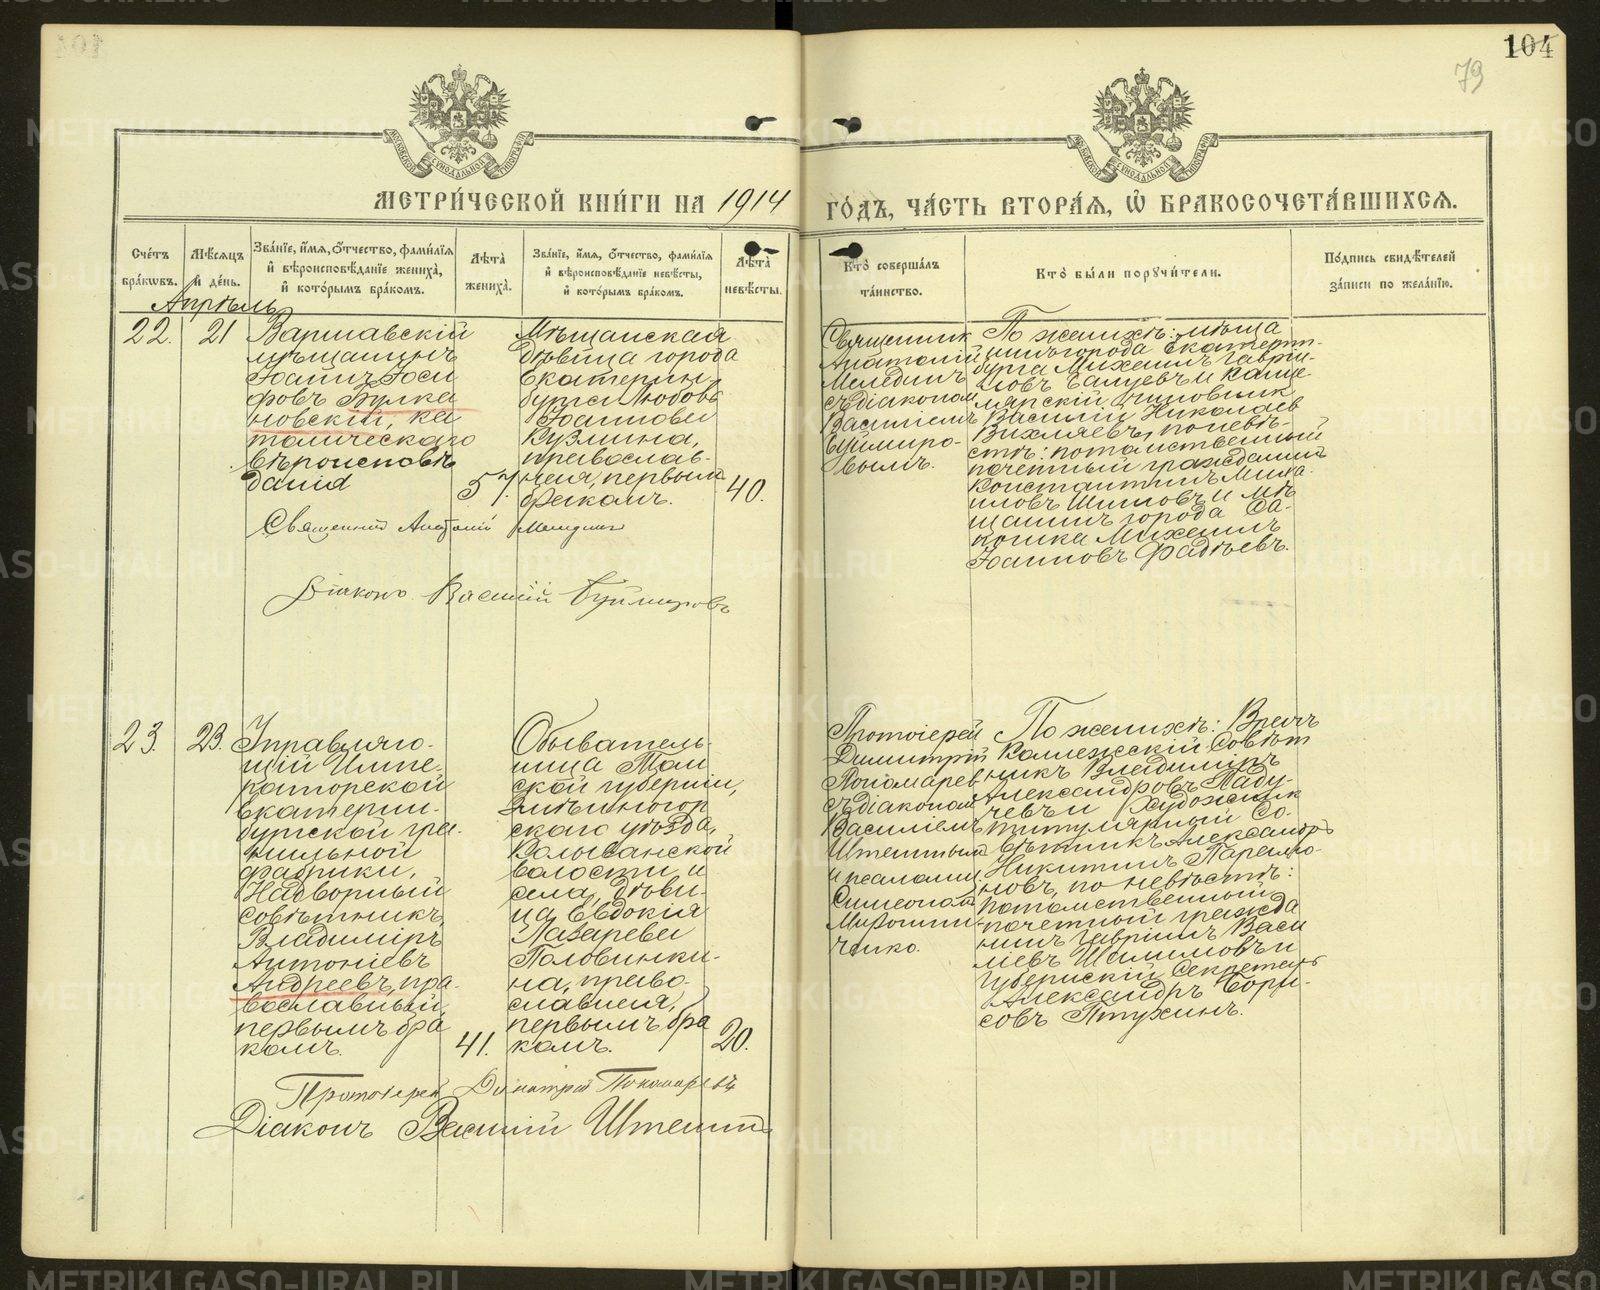 104
79
МЕТРИ́ЧЕСКОЙ КНИ́ГИ НА 1914 ГО́ДЪ, ЧА́СТЬ ВТОРА́Я, Ѡ БРАКОСОЧЕТА́ВШИХСЯ.
Сче́тъ бра́кѡвъ.
Мѣ́сяцъ и҆ де́нь.
Зва́нїе, и҆́мя, ѻ҆́тчество, фами́лїя и҆ вѣроисповѣ́данїе жениха̀, и҆ кото́рымъ бра́комъ.
Лѣ́та жениха̀.
Зва́нїе, и҆́мя, ѻ҆́тчество, фами́лїя и҆ вѣроисповѣ́данїе невѣ́сты, и҆ кото́рымъ бра́комъ.
Лѣ́та невѣ́сты.
Кто̀ соверша́лъ та́инство.
Кто̀ бы́ли порꙋчи́тели.
По́дпись свидѣ́телей за́писи по жела́нїю.
Апрѣль
22.
21
Варшавскій
мѣщанинъ
Іоаннъ Іоси
фовъ Булка
новскій, ка
толическаго
вѣроисповѣ
данія
57.
Мѣщанская
дѣвица города
Екатерин-
бурга Любовь
Іоаннова
Кузмина,
православ-
ная, первым
бракомъ.
40.
Священник
Анатолій
Мелединъ
съ діаконом
Василіемъ
Буймиро-
вымъ.
По женихѣ: мѣща
нинъ города Екатерин-
бурга Михаилъ Гаври-
ловъ и канце-
лярскій чиновник
Василій Николаев
Вихляевъ, по невѣ-
стѣ: потомственный
почетный гражданин
Константинъ Миха
иловъ Шиловъ и мѣ
щанинъ города
Михаилъ
Іоанновъ Фадѣевъ.
Священник Анатолій Меледин
Діаконъ Василій Буймировъ
23.
23.
Управляю-
щій Импе-
раторской
Екатерин-
бургской гра-
нильной
фабрики,
Надворный
совѣтникъ
Владиміръ
Антоніевъ
Андреевъ, пра-
вославный,
первымъ бра
комъ.
41.
Обыватель-
ница Том
ской губерніи,
Змѣиногор
скаго уѣзда,
Колыванской
волости и
села, дѣви-
ца Евдокія
Лазарева
Половинки-
на, право-
славная,
первымъ бра
комъ.
20.
Протоіерей
Димитрій
Пономарев
съ діаконом
Василіемъ
Штенным
и псаломщ.
Симеоном
Мирошни-
ченко.
По женихѣ: Врачъ
Коллежскій Совѣт
никъ Владиміръ
Александровъ Паду-
чевъ и Художник
титулярный Со-
вѣтникъ Александръ
Никитинъ Парамо-
новъ, по невѣстѣ:
потомственный
почетный гражда
нинъ Гавріилъ Васи
ліевъ и
Губернскій Секретарь
Александръ Бори-
совъ Птухинъ.
Протоіерей Димитрій Пономаревъ
Діаконъ Василій Штенн
METRIKI.GASO-URAL.RU